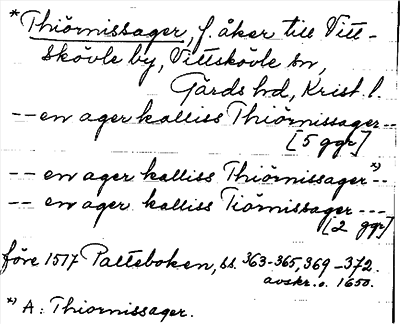 *Thiörnissager, f. åker till Vitt-
skövle by, Vittskövle sn,
Gärds hd, Krist. l.
-- en ager kalliss Thiörnissager --
[5 ggr]
-- en ager kalliss Thiörnissager *) --
-- en ager kalliss Tiörnissager ---
[2 ggr]
före 1517 Palteboken, ss. 363-365, 369-372.
avskr. o. 1650.
*) A: Thiornissager.